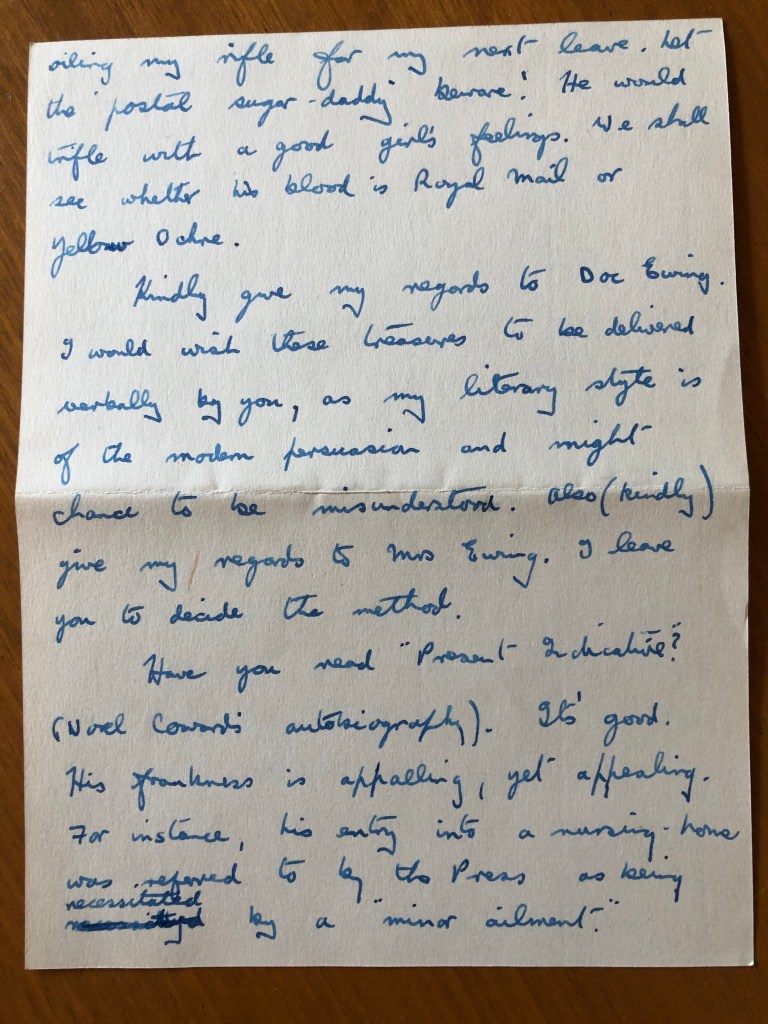 oiling my rifle for my next leave. Let
the "postal sugar-daddy" beware! He would
trifle with a good girl's feelings. We shall
see whether his blood is Royal Mail or
Yellow Ochre.
Kindly give my regards to Doc Ewing.
I would wish these treasures to be delivered
verbally by you, as my literary style is
of the modern persuasion and might
chance to be misunderstood. Also (kindly)
give my regards to Mrs Ewing. I leave
you to decide the method.
Have you read "Present Indicative?"
(Noel Coward's autobiography). It's good.
His frankness is appalling, yet appealing.
For instance, his entry into a nursing-home
was referred to by the Press as being
necessitated
by a "minor ailment."